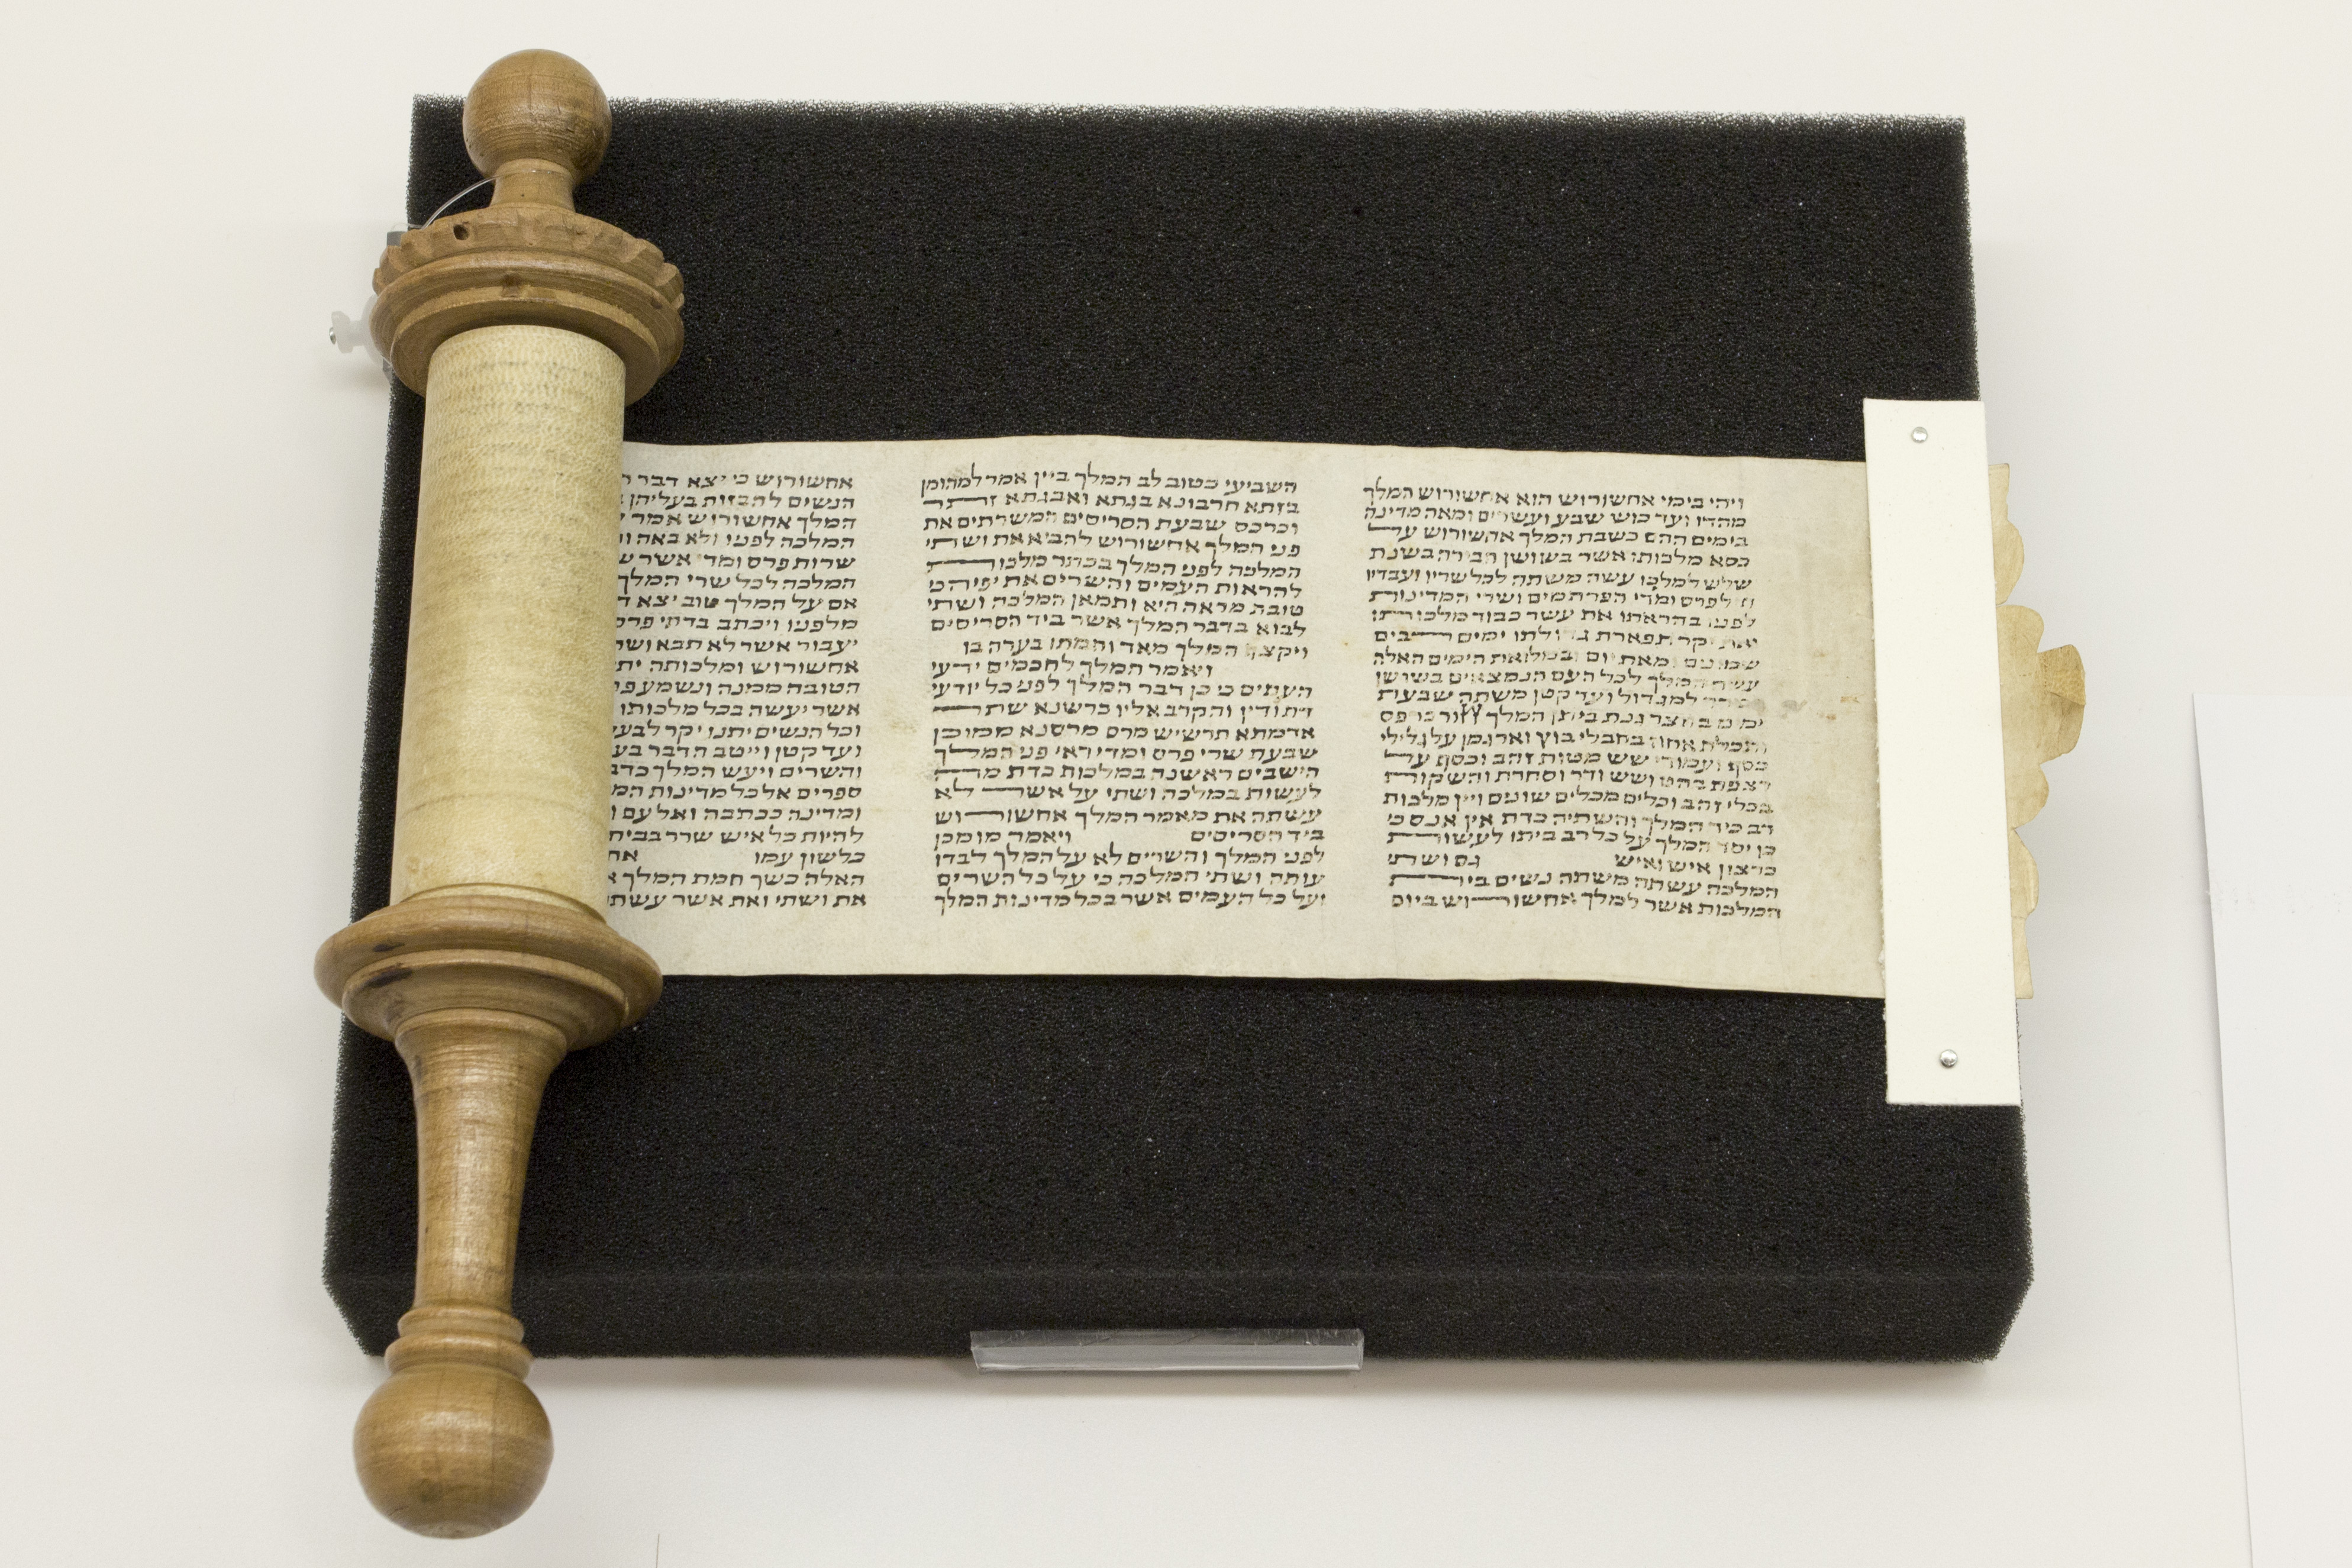 ויהי בימי אחשורוש הוא אחשורוש המלך
מהדו ועד כוש שבע ועשרים ומאה מדינה
בימים ההם כשבת המלך אחשורוש על
כסא מלכותו אשר בשושן הבירה בשנת
שלש למלכו עשה משתה לכל שריו ועבדיו
חיל פרס ומדי הפרתמים ושרי המדינות
לפניו בהראתו את עשר כבוד מלכותו
ואת יקר תפארת גדולתו ימים רבים
שמונים ומאת יום ובמלואת הימים האלה
עשה המלך לכל העם הנמצאים בשושן
הבירה למגדול ועד קטן משתה שבעת
ימים בחצר גנת ביתן המלך חור כרפס
ותכלת אחוז בחבלי בוץ וארגמן על גלילי
כסף ועמודי שש מטות זהב וכסף על
רצפת בהט ושש ודר וסחרת והשקות
בכלי זהב וכלים מכלים שונים ויין מלכות
רב כיד המלך והשתיה כדת אין אנס כי
כן יסד המלך על כל רב ביתו לעשות
כרצון איש ואיש גם ושתי
המלכה עשתה משתה נשים בית
המלכות אשר למלך אחשורוש ביום
השביעי כטוב לב המלך ביין אמר למהומן
בזתא חרבונא בגתא ואבגתא זתר
וכרכס שבעת הסריסים המשרתים את
פני המלך אחשורוש להביא את ושתי
המלכה לפני המלך בכתר מלכות
להראות העמים והשרים את יפיה כי
טובת מראה היא ותמאן המלכה ושתי
לבוא בדבר המלך אשר ביד הסריסים
ויקצף המלך מאד וחמתו בערה בו
ויאמר המלך לחכמים ידעי
העתים כי כן דבר המלך לפני כל יודעי
דת ודין והקרב אליו כרשנא שתר
אדמתא תרשיש מרס מרסנא ממוכן
שבעת שרי פרס ומדי ראי פני המלך
הישבים ראשנה במלכות כדת מה
לעשות במלכה ושתי על אשר לא
עשתה את מאמר המלך אחשורוש
ביד הסריסים ויאמר מומכן
לפני המלך והשרים לא על המלך לבדו
עותה ושתי המלכה כי על כל השרים
ועל כל העמים אשר בכל מדינות המלך
אחשורוש כי יצא דבר
הנשים להבזות בעליהן
המלך אחשורוש אמר
המלכה לפניו ולא באה
שרות פרס ומדי אשר
המלכה לכל שרי המלך
אם על המלך טוב יצא
מלפניו ויכתב בדתי פרס
יעבור אשר לא תבוא
אחשורוש ומלכותה
הטובה ממנה ונשמע
אשר יעשה בכל מלכותו
וכל הנשים יתנו יקר
ועד קטן וייטב הדבר
והשרים ויעש המלך
ספרים אל כל מדינות
ומדינה ככתבה ואל עם
להיות כל איש שרר
כלשון עמו
האלה כשך חמת המלך
את ושתי ואת אשר עשתה